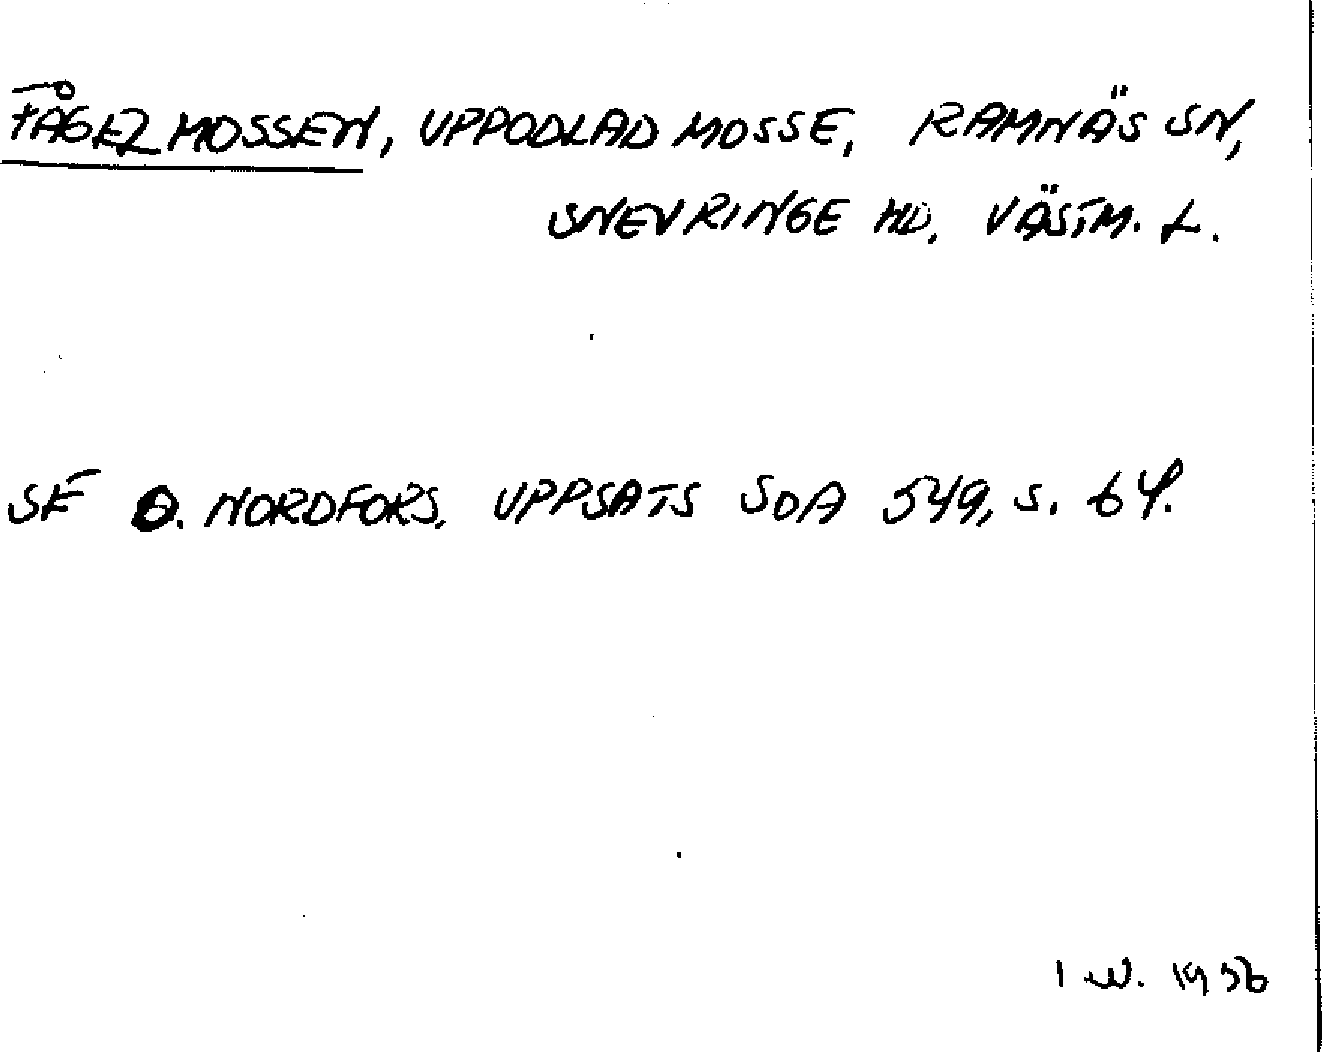 FÅGELMOSSEN, UPPODLAD MOSSE, RAMNÄS SN,
SNEVRINGE HD, VÄSTM. L.
SE O. NORDFORS, UPPSATS SOA 549, S. 64.
I W. 1936